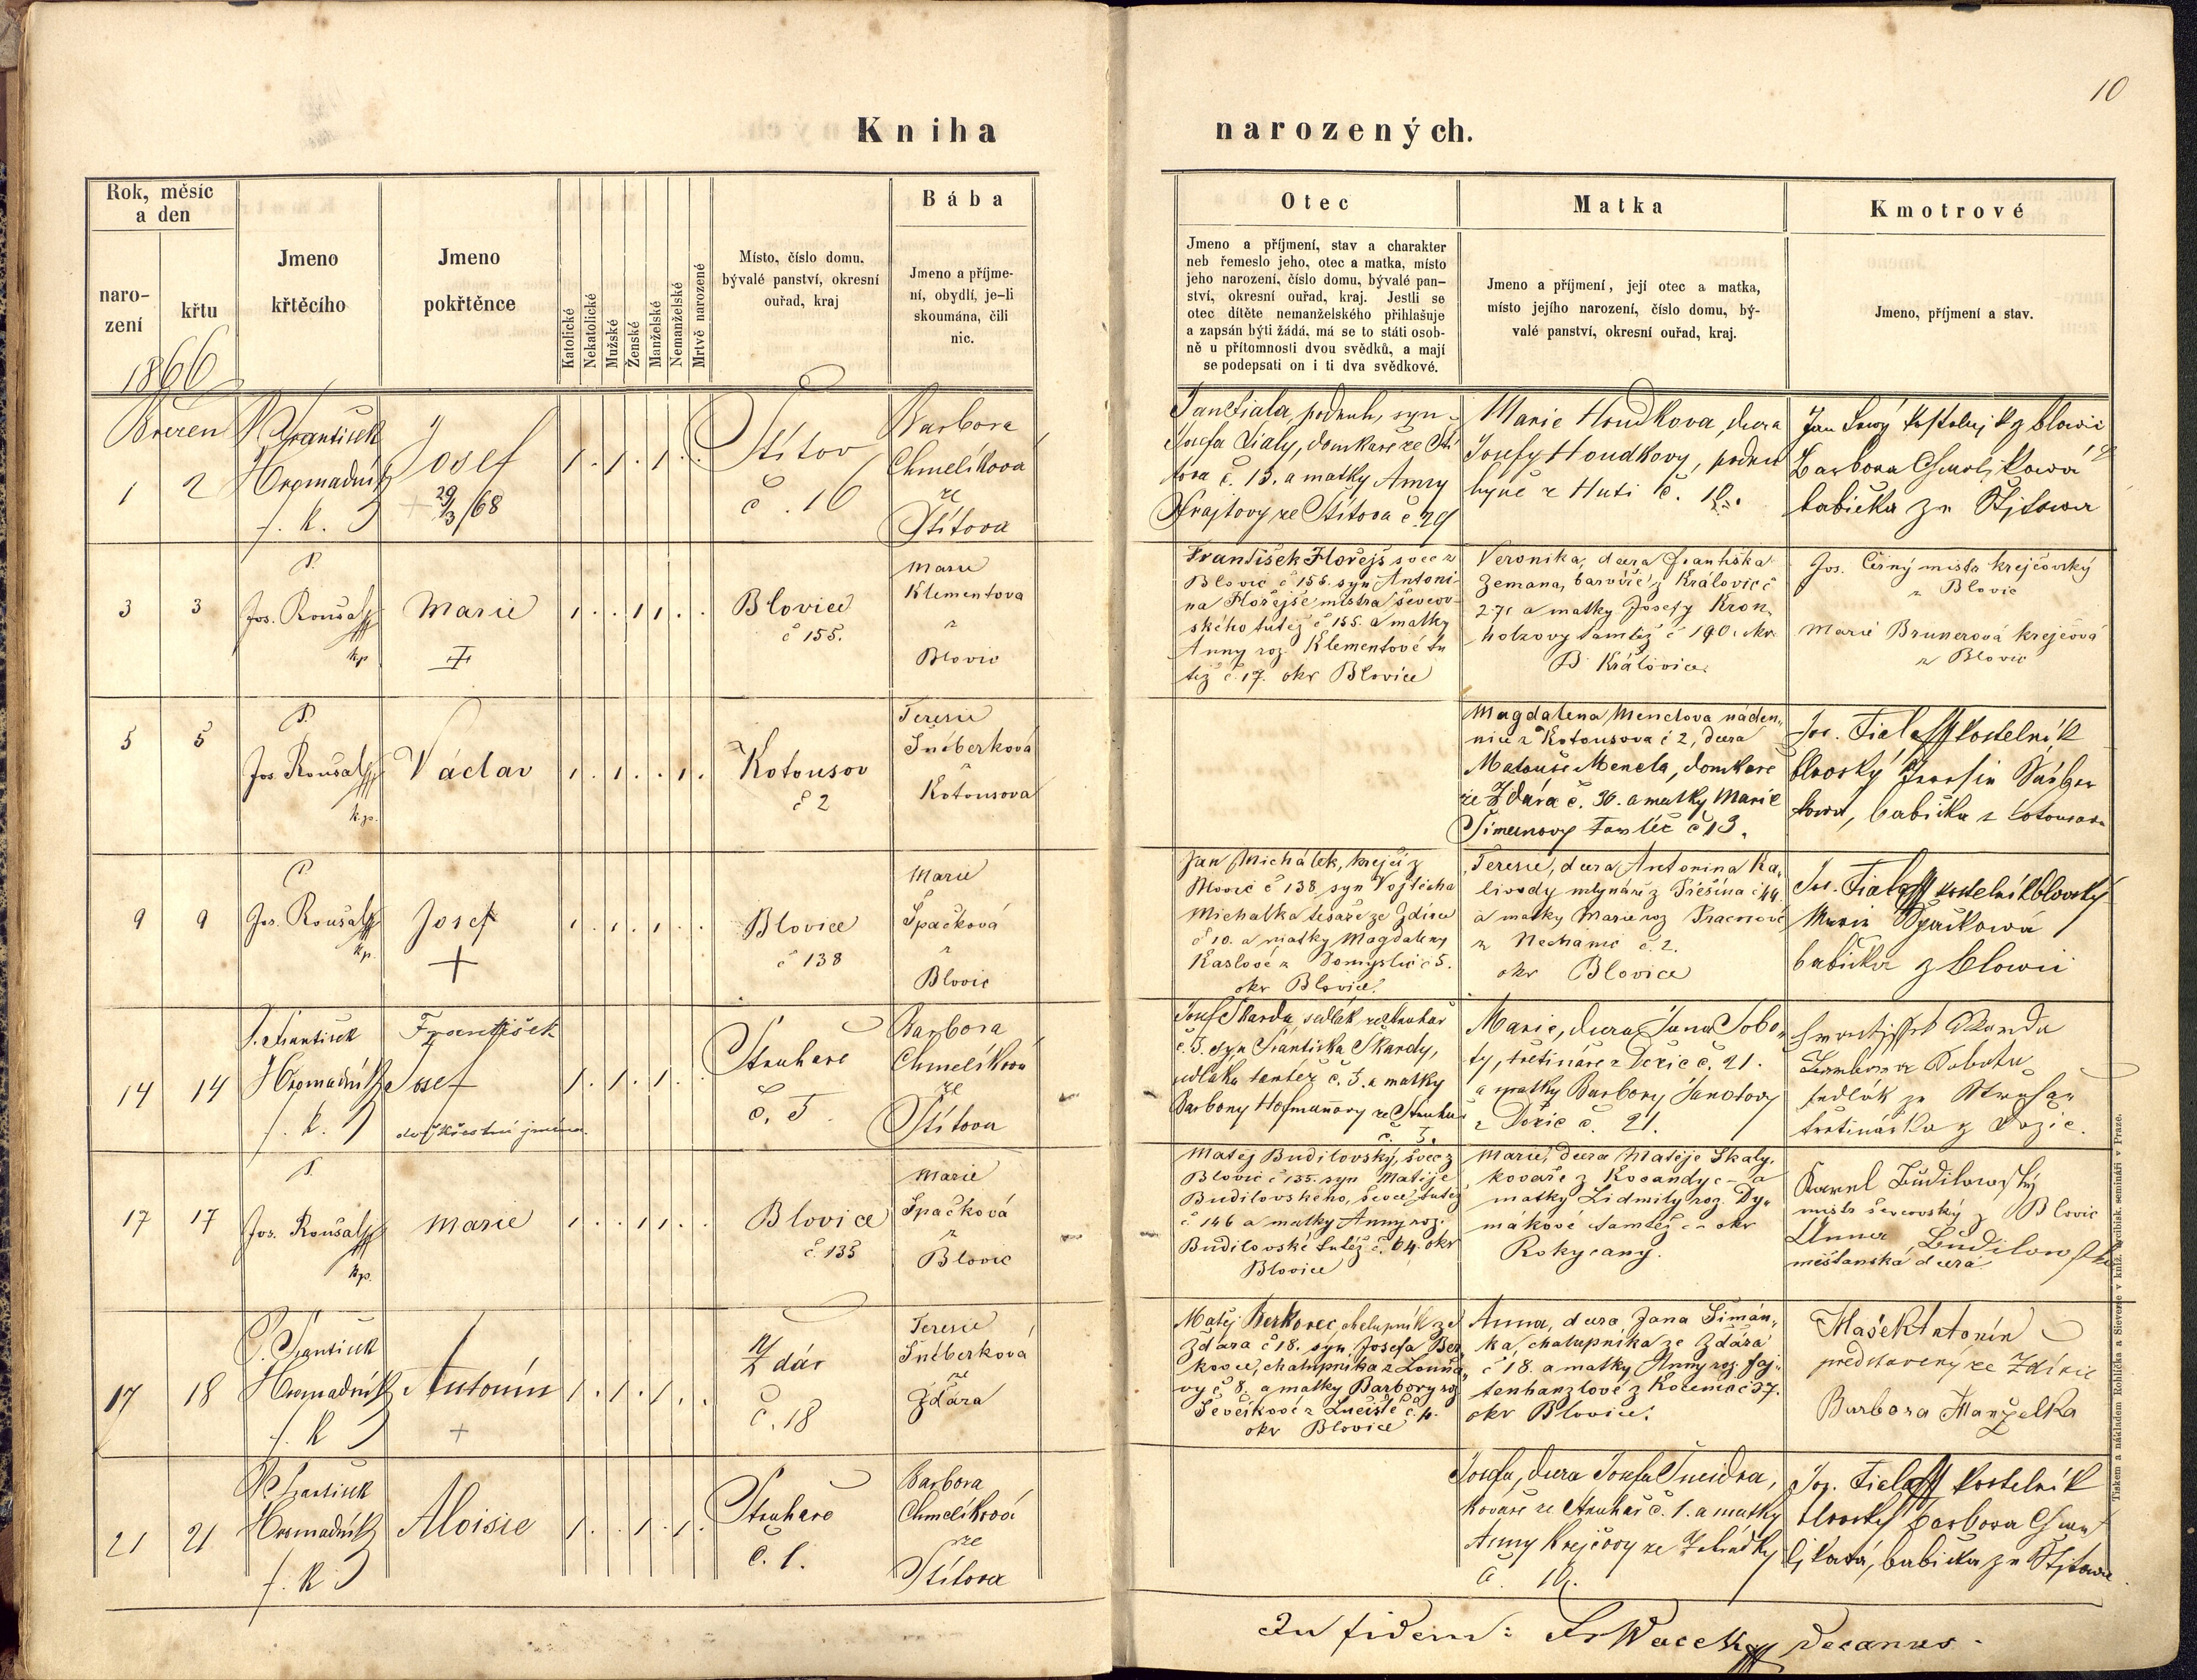 10
Kniha
narozených.
Rok, měsíc
a den
naro-
zení
křtu
Jmeno
křtěcího
Jmeno
pokřtěnce
Katolické
Nekatolické
Mužské
Ženské
Manželské
Nemanželské
Mrtvě narozené
Místo, číslo domu,
bývalé panství, okresní
ouřad, kraj
Bába
Jmeno a příjme-
ní, obydlí, je-li
skoumána, čili
nic.
Otec
Jmeno a příjmení, stav a charakter
neb řemeslo jeho, otec a matka, místo
jeho narození, číslo domu, bývalé pan-
ství, okresní ouřad, kraj. Jestli se
otec dítěte nemanželského přihlašuje
a zapsán býti žádá, má se to státi osob-
ně u přítomnosti dvou svědků, a mají
se podepsati on i ti dva svědkové.
Matka
Jmeno a příjmení, její otec a matka,
místo jejího narození, číslo domu, bý-
valé panství, okresní ouřad, kraj.
Kmotrové
Jmeno, příjmení a stav.
1866
Březen
1
2
P. František
Hromadník
f. k.
Josef
+ 29/3/68
Štítov
č. 16
Barbora
Chmelíkova
ze
Štítova
Jan Fiala, podruh, syn
Josefa Fialy, domkaře ze Ští
tova č. 13. a matky Anny
Hrajtovy ze Štítova č. 29
Marie Houdkova, dcera
Josefy Houdkovy, podru
hyně z Huti č.
Barbora
babička ze Štjtowa
3
3
P.
Jos. Roušal
kp
Marie
Blovice
č 155.
Marie
Klementova
z
Blovic
František Hořejš švec z
Blovic č 155. syn Antoni-
na Hořejše mistra ševcov-
ského tutéž č 155. a matky
Anny roz. Klementové tu
též č. 17. okr Blovice
Veronika, dcera Františka
Zemana, barvíře z Královic č
271 a matky Josefy Kron,
holzovy tamtéž č 190. okr
Královice.
Jos. Černý mistr krejčovský
z Blovic
Marie Brunerová krejčová
z Blovic
5
5
P.
Jos. Roušal
k.p.
Václav
Kotousov
č 2
Terezie
Šnéberková
z
Kotousova
Magdalena Menclova náden„
nice z Kotousova č 2, dcera
Matouše Mencla, domkaře
ze Ždára č. 30. a matky Marie
Šimunovy tamtéž č 13.
Jos. Fiala kostelník
blovský
babička z Kotousova
9
9
P.
Jos. Roušal
kp.
Josef
+
Blovice
č 138
Marie
Špačková
z
Blovic
Jan Michálek, krejčí z
Blovic č 138 syn Vojtěcha
Michalka tesaře ze Zdirce
č 10. a matky Magdaleny
Kaslové z Domyslic č 5.
okr Blovice.
Terezie, dcera Antonina Ka„
livody mlynáře z Příšína č 44.
a matky Marie roz
z Nechanic č. 2.
okr Blovice
Jos. Fiala kostelník blovský
Marie Špačkowá
babička z Blowic
14
14
P. František
Hromadník
f. k.
František
Josef
dvě křestní jména.
Struhaře
č. 5
Barbora
Chmelíkova
ze
Štítova
Josef Skarda, sedlák ze Struhař
č. 5. syn Františka Skardy,
sedláka tamtéž č. 5. a matky
Barbory Hofmanovy ze Struhař
č. 5.
Marie, dcera Jana Sobo„
ty, třetináře z Dožic č. 21.
a matky Barbory Janotovy
z Dožic č. 21.
František Skarda
Sobota
sedlák ze Struhař
z Dožic.
17
17
P.
Jos. Roušal
kp.
Marie
Blovice
č. 135
Marie
Špačková
z
Blovic
Matěj Budilovský, švec z
Blovic č 135. syn Matěje
Budilovského, ševce tutéž
č 146 a matky Anny roz.
Budilovské tutéž č. 64. okr
Blovice
Marie, dcera Matěje Skaly,
kováře z Kocandy č - a
matky Lidmily roz. Dy„
mákové tamtéž č - okr
Rokycany.
Karel Budilowský
mistr ševcovský z Blovic
Anna Budilowska
měšťanská dcera
17
18
P. František
Hromadník
f. k
Antonín
+
Ždár
č. 18
Terezie
Šnéberková
ze
Ždára
Matěj Berkovec chalupník ze
Ždára č 18. syn Josefa Ber
kovce, chalupníka z Louňo„
vy č 8. a matky Barbory roz
Ševčíkové z Lučiště č. 4.
okr Blovice
Anna, dcera Jana Šimán„
ka, chalupníka ze Ždára
č 18 a matky Anny roz. Faj„
tenhanzlové z Kořence č 37.
okr Blovice.
Mašek Antonín
predstavený ze Zdírce
Barbora Manželka
21
21
P. František
Hromadník
f. k
Aloisie
Struhaře
č. 1.
Barbora
Chmelíková
ze
Štítova
Josefa, dcera Josefa Šneidra,
kováře ze Struhař č. 1. a matky
Anny Krejčovy ze Zahrádky
č. 10.
Jos. Fiala kostelník
blovský Barbora Chme
ljkowá, babička ze Štjtowa
In fidem: Fr Wacek decanus.
Tiskem a nákladem Rohlíčka a Sieverse v kníž. arcibisk. semináři v Praze.